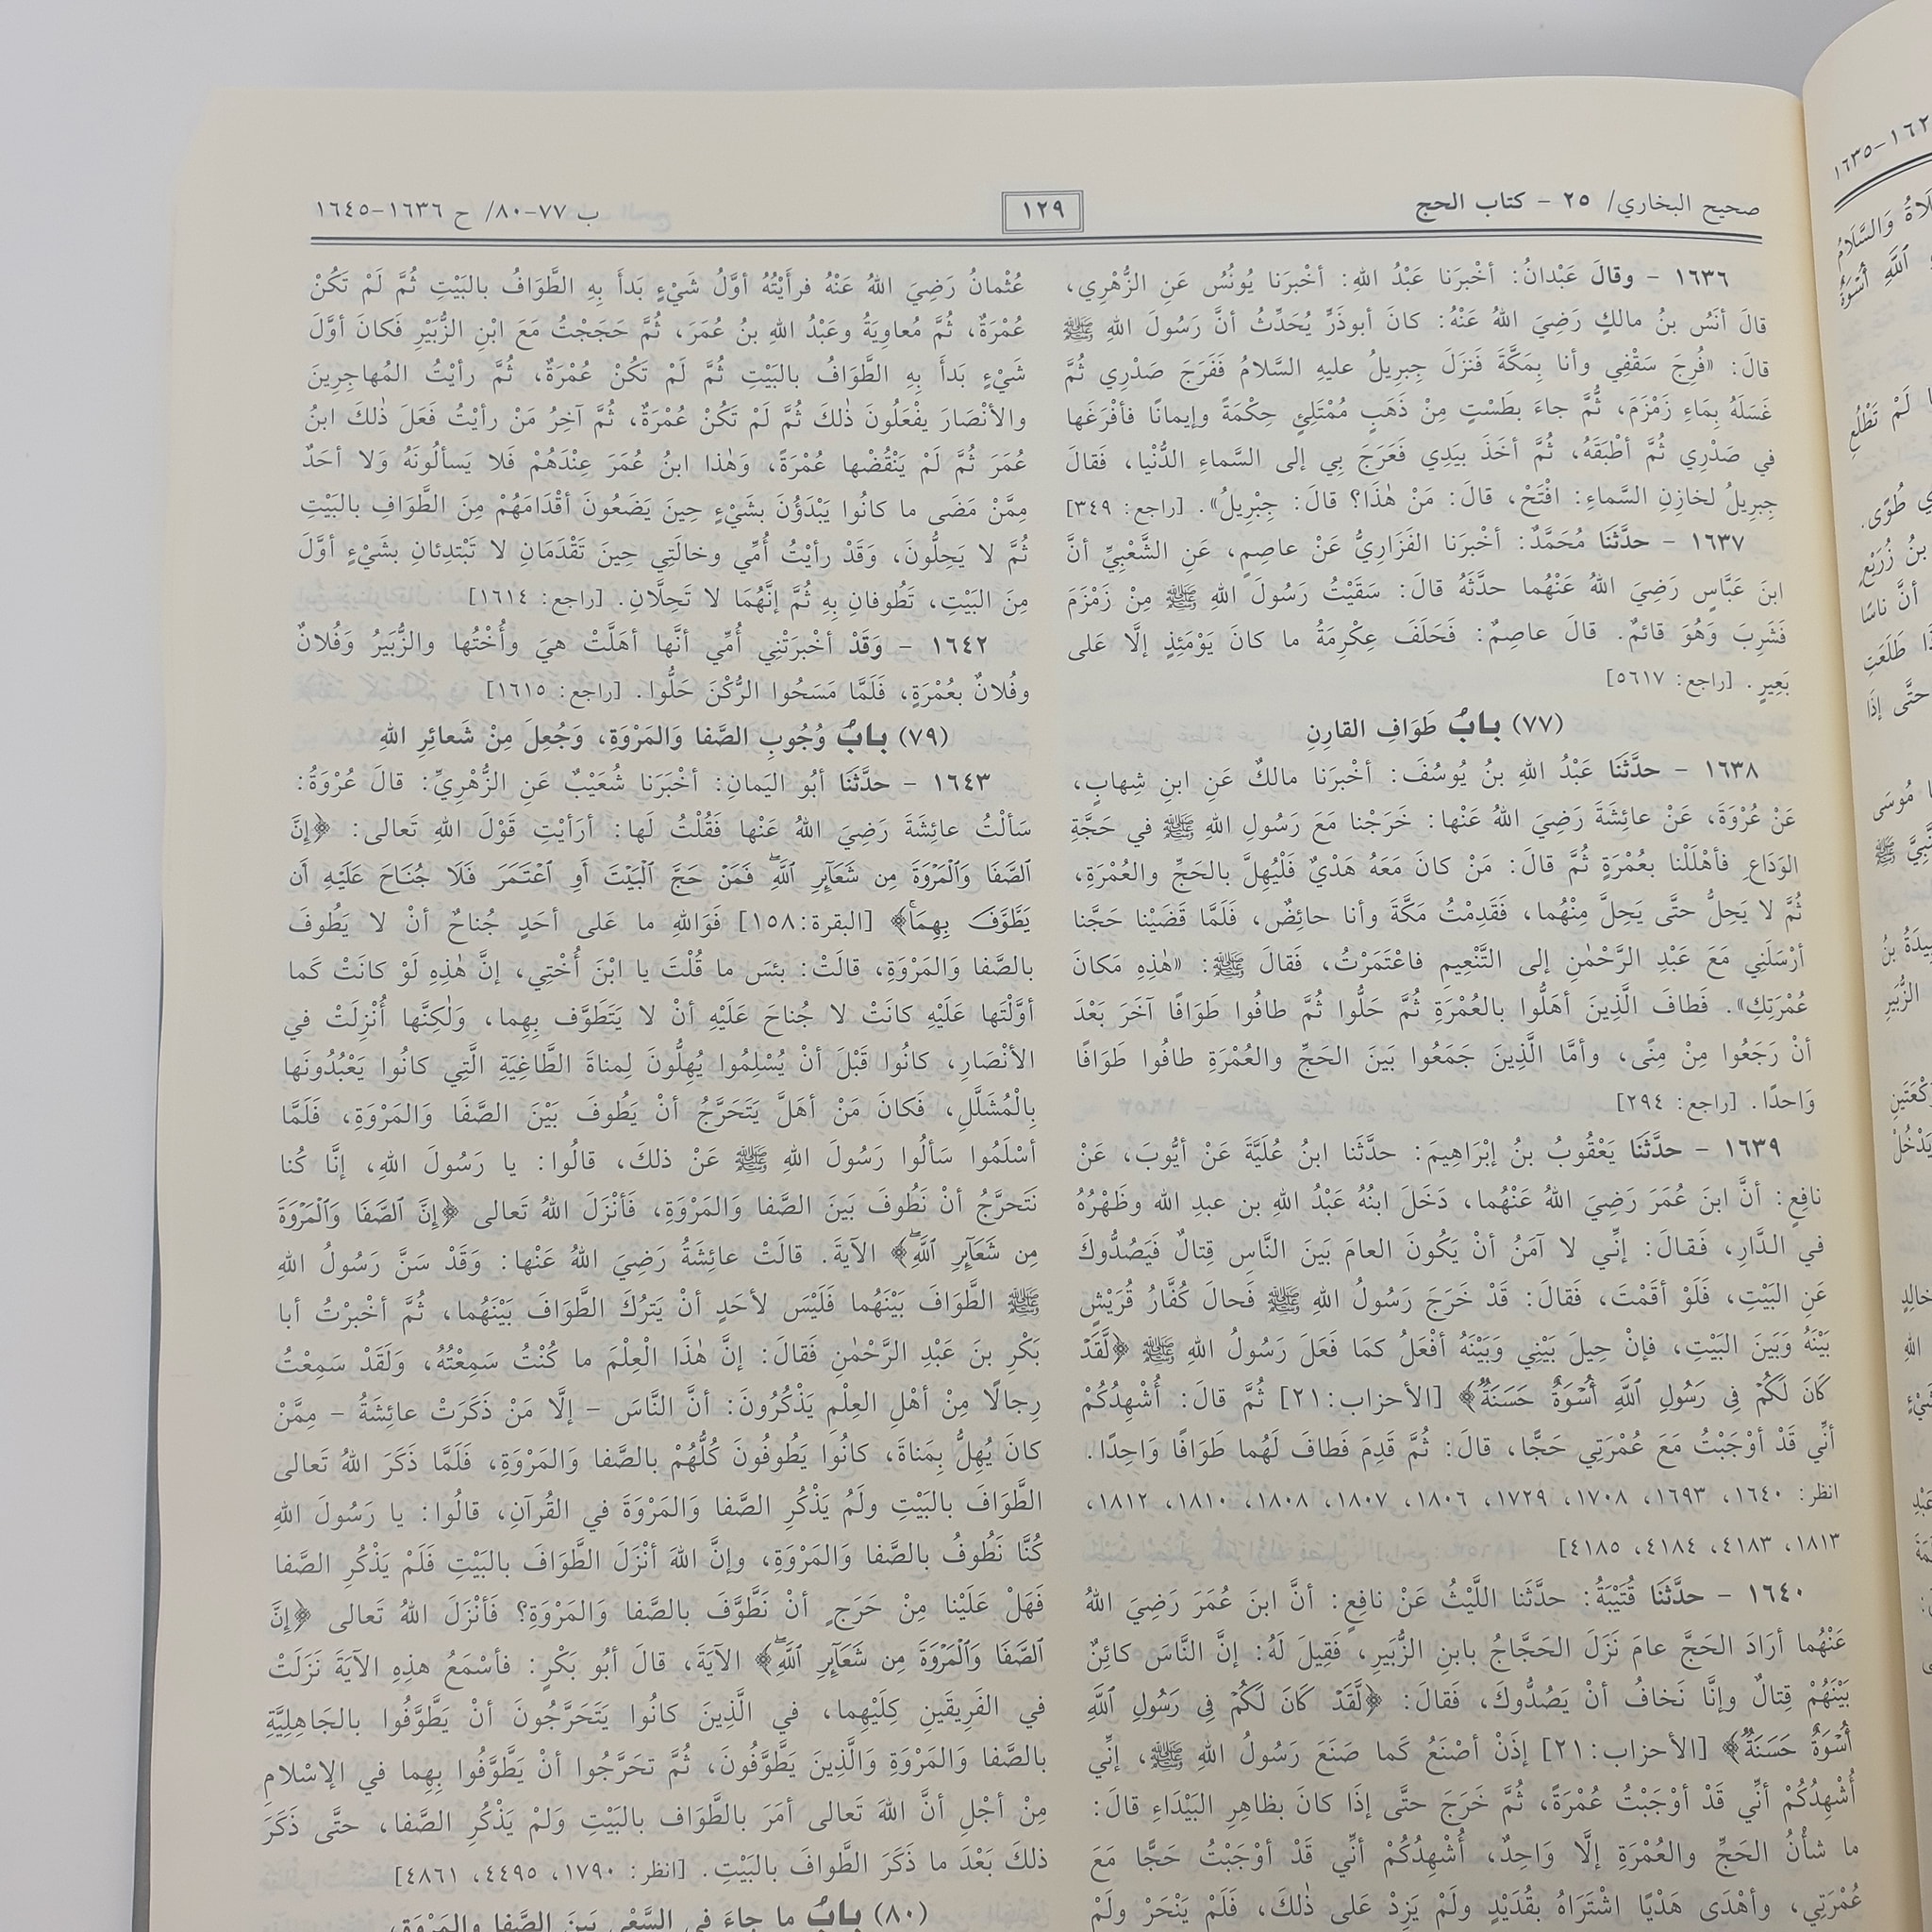 صحيح البخاري/ ٢٥ - كتاب الحج
١٢٩
ب ٧٧-٨٠/ ح ١٦٣٦-١٦٤٥
١٦٣٦ - وقالَ عَبْدانُ: أخْبرَنا عَبْدُ اللهِ: أخْبرَنا يُونُسُ عَنِ الزُّهْرِي،
قالَ أنَسُ بنُ مالكٍ رَضِيَ اللهُ عَنْهُ: كانَ أبوذَرٍّ يُحَدِّثُ أنَّ رَسُولَ اللهِ ﷺ
قالَ: «فُرِجَ سَقْفِي وأنا بِمَكَّةَ فَنَزَلَ جِبرِيلُ عليهِ السَّلامُ فَفَرَجَ صَدْرِي ثُمَّ
غَسَلَهُ بِمَاءِ زَمْزَمَ، ثُمَّ جاءَ بطَسْتٍ مِنْ ذَهَبٍ مُمْتَلِئٍ حِكْمَةً وإيمانًا فأفْرَغَها
في صَدْرِي ثُمَّ أطْبَقَهُ، ثُمَّ أخَذَ بيَدِي فَعَرَجَ بِي إلى السَّماءِ الدُّنْيا، فَقالَ
جِبرِيلُ لخازِنِ السَّماءِ: افْتَحْ، قالَ: مَنْ هٰذَا؟ قالَ: جِبْرِيلُ». [راجع: ٣٤٩]
١٦٣٧ - حدَّثَنَا مُحَمَّدٌ: أخْبرَنا الفَزَارِيُّ عَنْ عاصِمٍ، عَنِ الشَّعْبِيِّ أنَّ
ابنَ عَبَّاسٍ رَضِيَ اللهُ عَنْهُما حدَّثَهُ قالَ: سَقَيْتُ رَسُولَ اللهِ ﷺ مِنْ زَمْزَمَ
فَشَرِبَ وَهُوَ قائمٌ. قالَ عاصِمٌ: فَحَلَفَ عِكْرِمَةُ ما كانَ يَوْمَئِذٍ إلَّا عَلى
بَعِيرٍ. [راجع: ٥٦١٧]
(٧٧) بابُ طَوَافِ القارِنِ
١٦٣٨ - حدَّثَنَا عَبْدُ اللهِ بنُ يُوسُفَ: أخْبرَنا مالكٌ عَنِ ابنِ شِهابٍ،
عَنْ عُرْوَةَ، عَنْ عائِشَةَ رَضِيَ اللهُ عَنْها: خَرَجْنا مَعَ رَسُولِ اللهِ ﷺ في حَجَّةِ
الوَدَاعِ فأهْلَلْنا بعُمْرَةٍ ثُمَّ قالَ: مَنْ كانَ مَعَهُ هَدْيٌ فَلْيُهِلَّ بالحَجِّ والعُمْرَةِ،
ثُمَّ لا يَحِلُّ حتَّى يَحِلَّ مِنْهُما، فَقَدِمْتُ مَكَّةَ وأنا حائِضٌ، فَلَمَّا قَضَيْنا حَجَّنا
أرْسَلَنِي مَعَ عَبْدِ الرَّحْمٰنِ إلى التَّنْعِيمِ فاعْتَمَرْتُ، فَقالَ ﷺ: «هٰذِهِ مَكانَ
عُمْرَتِكِ». فَطافَ الَّذِينَ أهَلُّوا بالعُمْرَةِ ثُمَّ حَلُّوا ثُمَّ طافُوا طَوَافًا آخَرَ بَعْدَ
أنْ رَجَعُوا مِنْ مِنًى، وأمَّا الَّذِينَ جَمَعُوا بَينَ الحَجِّ والعُمْرَةِ طافُوا طَوَافًا
وَاحدًا. [راجع: ٢٩٤]
١٦٣٩ - حدَّثَنَا يَعْقُوبُ بنُ إبْرَاهِيمَ: حدَّثَنا ابنُ عُلَيَّةَ عَنْ أيُّوبَ، عَنْ
نافِعٍ: أنَّ ابنَ عُمَرَ رَضِيَ اللهُ عَنْهُما، دَخَلَ ابنُهُ عَبْدُ اللهِ بن عبدِ الله وظَهْرُهُ
في الدَّارِ، فَقالَ: إنِّي لا آمَنُ أنْ يَكُونَ العامَ بَينَ النَّاسِ قِتالٌ فَيَصُدُّوكَ
عَنِ البَيْتِ، فَلَوْ أقَمْتَ، فَقالَ: قَدْ خَرَجَ رَسُولُ اللهِ ﷺ فَحالَ كُفَّارُ قُرَيْشٍ
بَيْنَهُ وَبَينَ البَيْتِ، فإنْ حِيلَ بَيْنِي وَبَيْنَهُ أفْعَلُ كمَا فَعَلَ رَسُولُ اللهِ ﷺ ﴿لَّقَدْ
كَانَ لَكُمْ فِى رَسُولِ ٱللَّهِ أُسْوَةٌ حَسَنَةٌ﴾ [الأحزاب:٢١] ثُمَّ قالَ: أُشْهِدُكُمْ
أنِّي قَدْ أوْجَبْتُ مَعَ عُمْرَتِي حَجًّا، قالَ: ثُمَّ قَدِمَ فَطافَ لَهُما طَوَافًا وَاحِدًا.
انظر: ١٦٤٠، ١٦٩٣، ١٧٠٨، ١٧٢٩، ١٨٠٦، ١٨٠٧، ١٨٠٨، ١٨١٠، ١٨١٢،
١٨١٣، ٤١٨٣، ٤١٨٤، ٤١٨٥]
١٦٤٠ - حدَّثَنَا قُتَيْبَةُ: حدَّثَنا اللَّيْثُ عَنْ نافِعٍ: أنَّ ابنَ عُمَرَ رَضِيَ اللهُ
عَنْهُما أرَادَ الحَجَّ عامَ نَزَلَ الحَجَّاجُ بابنِ الزُّبَيرِ، فَقِيلَ لَهُ: إنَّ النَّاسَ كائِنٌ
بَيْنَهُمْ قِتالٌ وإنَّا نَخافُ أنْ يَصُدُّوكَ، فَقالَ: ﴿لَّقَدْ كَانَ لَكُمْ فِى رَسُولِ ٱللَّهِ
أُسْوَةٌ حَسَنَةٌ﴾ [الأحزاب:٢١] إذَنْ أصْنَعُ كَما صَنَعَ رَسُولُ اللهِ ﷺ، إنِّي
أُشْهِدُكُمْ أنِّي قَدْ أوْجَبْتُ عُمْرَةً، ثُمَّ خَرَجَ حتَّى إذَا كانَ بظاهِرِ البَيْدَاءِ قالَ:
ما شأْنُ الحَجِّ والعُمْرَةِ إلَّا وَاحِدٌ، أُشْهِدُكُمْ أنِّي قَدْ أوْجَبْتُ حَجًّا مَعَ
عُمْرَتِي، وأهْدَى هَدْيًا اشْتَرَاهُ بقُدَيْدٍ ولَمْ يَزِدْ عَلى ذٰلكَ، فَلَمْ يَنْحَرْ ولَمْ
عُثْمانُ رَضِيَ اللهُ عَنْهُ فرأيْتُهُ أوَّلُ شَيْءٍ بَدأَ بِهِ الطَّوَافُ بالبَيْتِ ثُمَّ لَمْ تَكُنْ
عُمْرَةٌ، ثُمَّ مُعاوِيَةُ وعَبْدُ اللهِ بنُ عُمَرَ، ثُمَّ حَجَجْتُ مَعَ ابْنِ الزُّبَيْرِ فَكانَ أوَّلَ
شَيْءٍ بَدأَ بِهِ الطَّوَافُ بالبَيْتِ ثُمَّ لَمْ تَكُنْ عُمْرَةٌ، ثُمَّ رأيْتُ المُهاجِرِينَ
والأنْصَارَ يفْعَلُونَ ذٰلكَ ثُمَّ لَمْ تَكُنْ عُمْرَةٌ، ثُمَّ آخِرُ مَنْ رأيْتُ فَعَلَ ذٰلكَ ابنُ
عُمَرَ ثُمَّ لَمْ يَنْقُضْها عُمْرَةً، وَهٰذا ابنُ عُمَرَ عِنْدَهُمْ فَلا يَسألُونَهُ وَلا أحَدٌ
مِمَّنْ مَضَى ما كانُوا يَبْدَؤُنَ بشَيْءٍ حِينَ يَضَعُونَ أقْدَامَهُمْ مِنَ الطَّوَافِ بالبَيْتِ
ثُمَّ لا يَحِلُّونَ، وَقَدْ رأيْتُ أُمِّي وخالَتِي حِينَ تَقْدَمَانِ لا تَبْتدِئانِ بشَيْءٍ أوَّلَ
مِنَ البَيْتِ، تَطُوفانِ بِهِ ثُمَّ إنَّهُمَا لا تَحِلَّانِ. [راجع: ١٦١٤]
١٦٤٢ - وَقَدْ أخْبرَتْنِي أُمِّي أنَّها أهَلَّتْ هيَ وأُخْتُها والزُّبَيرُ وَفُلانٌ
وفُلانٌ بعُمْرَةٍ، فَلَمَّا مَسَحُوا الرُّكْنَ حَلُّوا. [راجع: ١٦١٥]
(٧٩) بابُ وُجُوبِ الصَّفا وَالمَرْوَةِ، وَجُعِلَ مِنْ شَعائِرِ اللهِ
١٦٤٣ - حدَّثَنَا أبُو اليَمانِ: أخْبَرَنا شُعَيْبٌ عَنِ الزُّهْرِيِّ: قالَ عُرْوَةُ:
سَألْتُ عائِشَةَ رَضِيَ اللهُ عَنْها فَقُلْتُ لَها: أرَأيْتِ قَوْلَ اللهِ تَعالى: ﴿إِنَّ
ٱلصَّفَا وَٱلْمَرْوَةَ مِن شَعَآئِرِ ٱللَّهِۖ فَمَنْ حَجَّ ٱلْبَيْتَ أَوِ ٱعْتَمَرَ فَلَا جُنَاحَ عَلَيْهِ أَن
يَطَّوَّفَ بِهِمَا﴾ [البقرة:١٥٨] فَوَاللهِ ما عَلى أحَدٍ جُناحٌ أنْ لا يَطُوفَ
بالصَّفا وَالمَرْوَةِ، قالَتْ: بئسَ ما قُلْتَ يا ابْنَ أُخْتِي، إنَّ هٰذِهِ لَوْ كانَتْ كَما
أوَّلْتَها عَلَيْهِ كانَتْ لا جُناحَ عَلَيْهِ أنْ لا يَتَطَوَّف بِهِما، وَلٰكِنَّها أُنْزِلَتْ في
الأنْصَارِ، كانُوا قَبْلَ أنْ يُسْلِمُوا يُهِلُّونَ لِمناةَ الطَّاغِيَةِ الَّتِي كانُوا يَعْبُدُونَها
بِالْمُشَلَّلِ، فَكانَ مَنْ أهَلَّ يَتَحَرَّجُ أنْ يَطُوفَ بَيْنَ الصَّفَا وَالمَرْوَةِ، فَلَمَّا
أسْلَمُوا سَألُوا رَسُولَ اللهِ ﷺ عَنْ ذلكَ، قالُوا: يا رَسُولَ اللهِ، إنَّا كُنا
نَتَحرَّجُ أنْ نَطُوفَ بَينَ الصَّفا وَالمَرْوَةِ، فَأنْزَلَ اللهُ تَعالى ﴿إِنَّ ٱلصَّفَا وَٱلْمَرْوَةَ
مِن شَعَآئِرِ ٱللَّهِۖ﴾ الآيةَ. قالَتْ عائِشَةُ رَضِيَ اللهُ عَنْها: وَقَدْ سَنَّ رَسُولُ اللهِ
ﷺ الطَّوَافَ بَيْنَهُما فَلَيْسَ لأحَدٍ أنْ يَترُكَ الطَّوَافَ بَيْنَهُما، ثُمَّ أخْبرْتُ أبا
بَكْرِ بنَ عَبْدِ الرَّحْمٰنِ فَقالَ: إنَّ هٰذَا الْعِلْمَ ما كُنْتُ سَمِعْتُهُ، وَلَقَدْ سَمِعْتُ
رِجالًا مِنْ أهْلِ العِلْمِ يَذْكُرُونَ: أنَّ النَّاسَ - إلَّا مَنْ ذَكَرَتْ عائِشَةُ - مِمَّنْ
كانَ يُهِلُّ بِمَناةَ، كانُوا يَطُوفُونَ كُلُّهُمْ بالصَّفا وَالمَرْوَةِ، فَلَمَّا ذَكَرَ اللهُ تَعالى
الطَّوَافَ بالبَيْتِ ولَمُ يَذْكُرِ الصَّفا وَالمَرْوَةَ في القُرآنِ، قالُوا: يا رَسُولَ اللهِ
كُنَّا نَطُوفُ بالصَّفا وَالمَرْوَةِ، وإنَّ اللهَ أنْزَلَ الطَّوَافَ بالبَيْتِ فَلَمْ يَذْكُرِ الصَّفا
فَهَلْ عَلَيْنا مِنْ حَرَجٍ أنْ نَطَّوَّفَ بالصَّفا وَالمَرْوَةِ؟ فَأنْزَلَ اللهُ تَعالى ﴿إِنَّ
ٱلصَّفَا وَٱلْمَرْوَةَ مِن شَعَآئِرِ ٱللَّهِۖ﴾ الآيَةَ، قالَ أبُو بَكْرٍ: فأسْمَعُ هذِهِ الآيَةَ نَزَلَتْ
في الفَرِيقَينِ كِلَيْهِما، في الَّذِينَ كانُوا يَتَحَرَّجُونَ أنْ يَطَّوَّفُوا بالجَاهِلِيَّةِ
بالصَّفا وَالمَرْوَةِ وَالَّذِينَ يَطَّوَّفُونَ، ثُمَّ تحَرَّجُوا أنْ يَطَّوَّفُوا بِهِما في الإسْلامِ
مِنْ أجْلِ أنَّ اللهَ تَعالى أمَرَ بالطَّوَاف بالبَيْتِ وَلمْ يَذْكُرِ الصَّفا، حتَّى ذَكَرَ
ذلكَ بَعْدَ ما ذَكَرَ الطَّوافَ بالبَيْتِ. [انظر: ١٧٩٠، ٤٤٩٥، ٤٨٦١]
(٨٠) بابُ ما جاءَ في السَّعْي بَينَ الصَّفا والمَرْوَةِ،